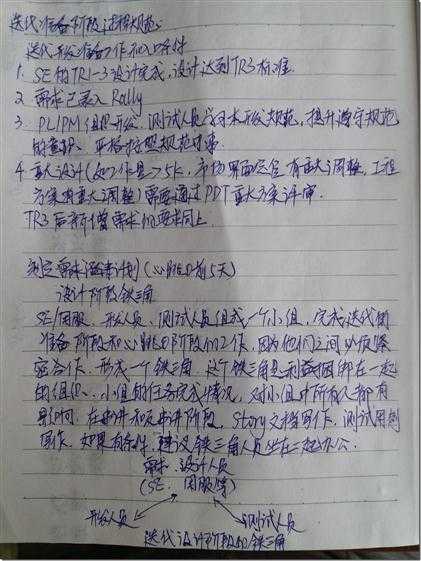 迭代准备阶段过程规范:
迭代开发准备工作和入口条件
1. SE的TR1-3设计完成,设计达到TR3标准.
2. 需求已录入Rally
3. PL/PM组织开发、测试人员学习本开发规范,提升遵守规范
的意识、严格按照规范办事.
4. 重大设计(如工作量>5K,市场界面定位有重大调整,工程
方案有重大调整)需要通过PDT重大方案评审.
TR3后新增需求仍要求同上.
制定需求澄清计划(心跳0前5天)
设计阶段铁三角
SE/用服、开发人员、测试人员组成一个小组,完成迭代
准备阶段和心跳0阶段的工作,因为他们之间必须紧
密合作,形成一个铁三角,这个铁三角是利益捆绑在一起
的组织、小组的任务完成情况,对小组中所有人都有
影响. 在串讲和反串讲阶段,Story文档写作、测试用例
写作,如果有条件,建议铁三角人员坐在一起办公.
需求、设计人员
(SE、用服等)
开发人员 测试人员
迭代设计阶段的铁三角